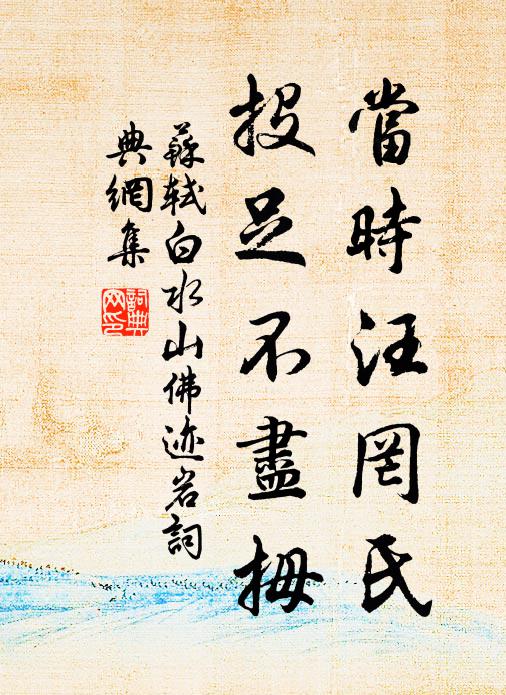 當時汪罔氏
投足不盡拇
蘇軾白水山佛迹岩詞
典網集
詞典网印